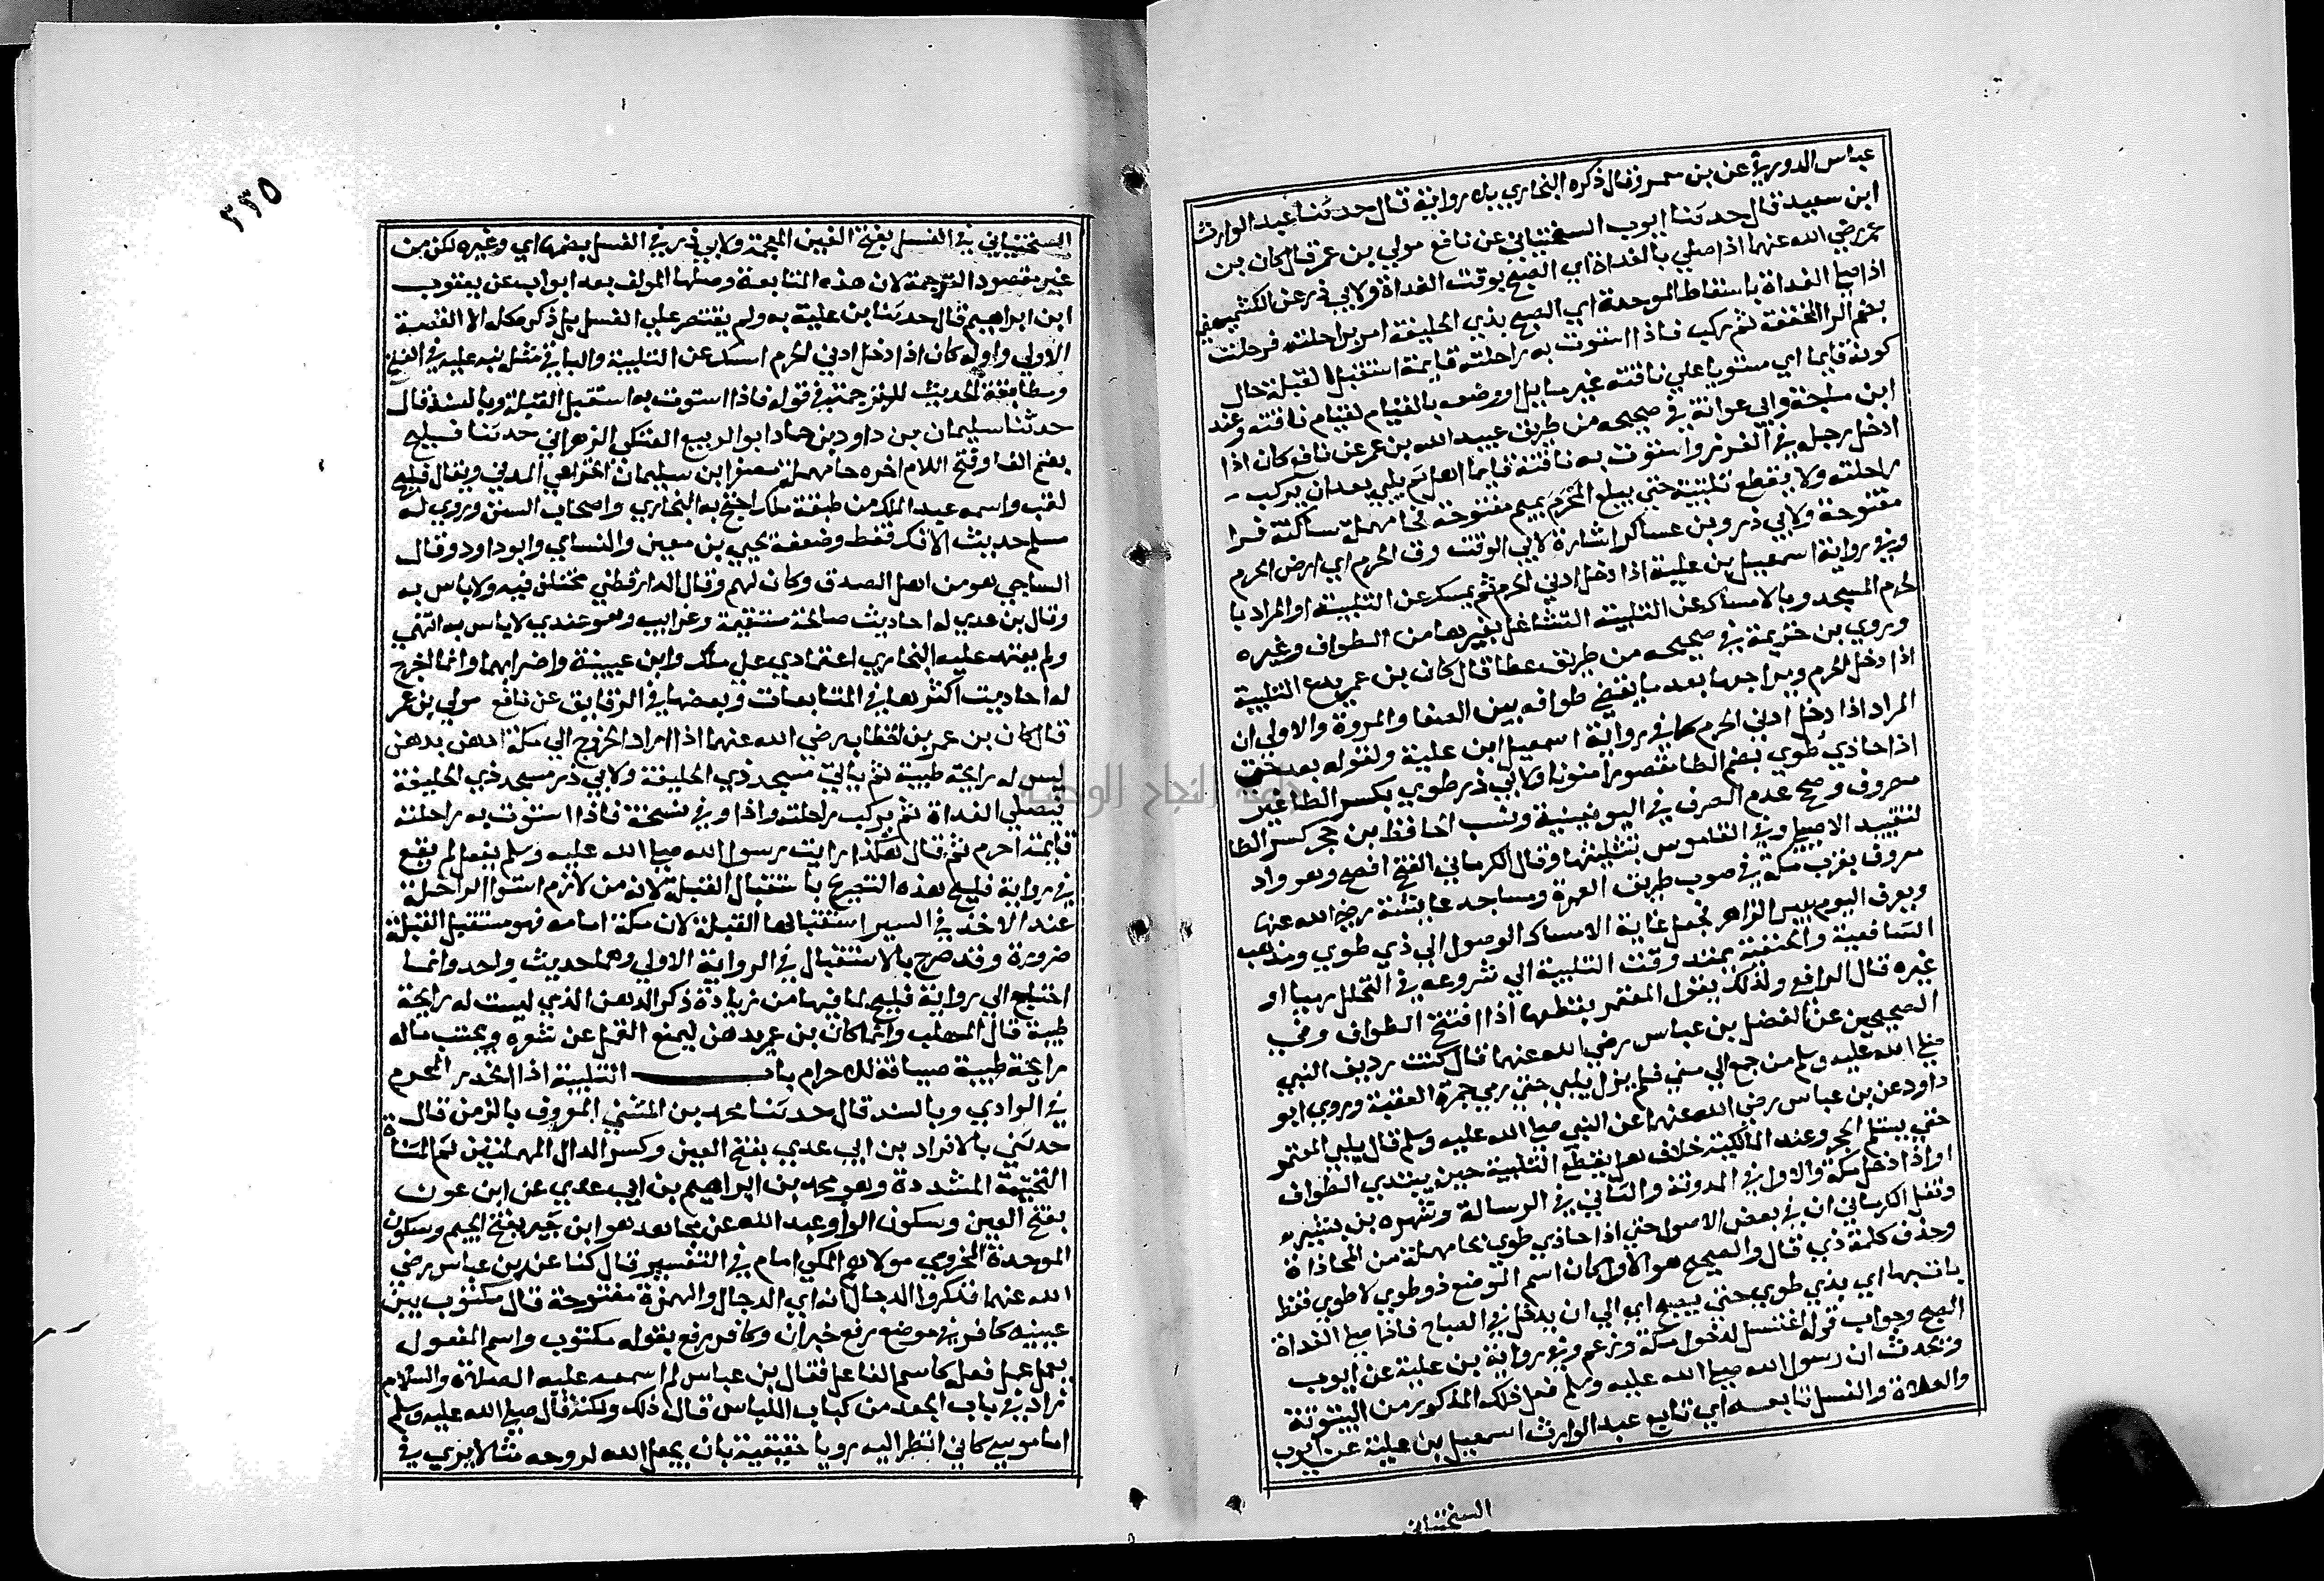 عباس الدوري عن بن معمر وقال ذكره البخاري بلا رواية قال حدثنا عبد الوارث
ابن سعيد قال حدثنا ايوب السختياني عن نافع مولي بن عمر قال كان بن
عمر رضي الله عنهما اذا صلي بالغداة اي الصبح بوقت الغداة ولابي ذر عن الكشميهني
اذا صلي الغداة باسقاط الموحدة اي الصبح بذي الحليفة امر براحلته فرحلت
بضم الرا المخففة ثم ركب فاذا استوت به راحلته قايمة استقبل القبلة حال
كونه قايما اي مستويا علي ناقته غير مايل او وصفه بالقيام لقيام ناقته وعند
ابن ماجة وابي عوانة في صحيحه من طريق عبيد الله بن عمر عن نافع كان اذا
ادخل رجله في الغرز واستوت به ناقته قايما اهل ثم يلبي بعد ان يركب
راحلته ولا يقطع تلبيته حتي يبلغ المحرم بميم مفتوحة فحا مهملة ساكنة فرا
مفتوحة ولابي ذر وبن عساكر اشارة لابي الوقت وفي الحرم اي ارض الحرم
وفي رواية اسمعيل بن علية اذا دخل ادني الحرم ثم يمسك عن التلبية او المراد با
لحرم المسجد وبالامساك عن التلبية التشاغل بغيرها من الطواف وغيره
وروي بن خزيمة في صحيحه من طريق عطا قال كان بن عمر يدع التلبية
اذا دخل الحرم ويراجعها بعد ما يقضي طوافه بين الصفا والمروة والاولي ان
المراد اذا دخل ادني الحرم كما في رواية اسمعيل ابن علية ولقوله بعد حتي
اذا حاذي طوي بضم الطا مقصورا منونا ولابي ذر طوي بكسر الطا غير
مصروف وصح عدم الصرف في اليونينية ونسب الحافظ بن حجر كسر الطا
لتقييد الاصيلي وفي القاموس تثليثها وقال الكرماني الفتح افصح وهو واد
معروف بقرب مكة في صوب طريق العمرة ومساجد عايشة رضي الله عنها
ويعرف اليوم ببير الزاهر فجعل غاية الامساك الوصول الي ذي طوي ومذهب
الشافعية والحنفية يمتد وقت التلبية الي شروعه في التحلل رميا او
غيره قال الرافعي ولذلك يقول المعتمر يقطعها اذا افتتح الطواف وفي
الصحيحين عن الفضل بن عباس رضي الله عنهما قال كنت رديف النبي
صلي الله عليه وسلم من جمع الي مني فلم يزل يلبي حتي رمي جمرة العقبة وروي ابو
داود عن بن عباس رضي الله عنهما عن النبي صلي الله عليه وسلم قال يلبي المعتمر
حتي يستلم الحجر وعند المالكية خلاف هل يقطع التلبية حين يبتدي الطواف
او اذا دخل مكة والاول في المدونة والثاني في الرسالة وشهره بن بشير
ونقل الكرماني ان في بعض الاصول حتي اذا حاذي طوي بحا مهملة من المحاذاة
وحذف كلمة ذي قال والصحيح هو الاول لان اسم الموضع ذو طوي لا طوي فقط
بات بها اي بذي طوي حتي يصبح اي الي ان يدخل في الصباح فاذا صلي الغداة
الصبح وجواب قوله اغتسل لدخول مكة وزعم وفي رواية بن علية عن ايوب
ويحدث ان رسول الله صلي الله عليه وسلم فعل ذلك المذكور من البيتوتة
والصلاة والغسل تابعه اي تابع عبد الوارث اسمعيل بن علية عن ايوب
السختياني
٢٣٥
السختياني في الغسل بفتح الغين المعجمة ولابي ذر في الغسل بضمها اي وغيره لكن من
غير مقصود الترجمة لان هذه المتابعة وصلها المولف بعد ابواب عن يعقوب
ابن ابراهيم قال حدثنا بن علية به ولم يقتصر علي الغسل بل ذكر كله الا القصة
الاولي واوله كان اذا دخل ادني الحرم امسك عن التلبية والباقي مثله نبه عليه في الفتح
ومطابقة الحديث للترجمة في قوله فاذا استوت به استقبل القبلة وبالسند قال
حدثنا سليمان بن داود بن حماد ابو الربيع العتكي الزهراني حدثنا فليح
بضم الفا وفتح اللام اخره حا مهملة مصغرا بن سليمان الخزاعي المدني ويقال فليح
لقب واسمه عبد الملك من طبقة مالك احتج به البخاري واصحاب السنن وروي له
مسلم حديث الافك فقط وضعفه يحيي بن معين والنساي وابو داود وقال
الساجي هو من اهل الصدق وكان يهم وقال الدارقطني مختلف فيه ولا باس به
وقال بن عدي له احاديث صالحة مستقيمة وغرايب وهو عندي لا باس به انتهي
ولم يعتمد عليه البخاري اعتمادي علي ملك وابن عيينة واضرابهما وانما اخرج
له احاديث اكثرها في المتابعات وبعضها في الرقايق عن نافع مولي بن عمر
قال كان بن عمر بن الخطاب رضي الله عنهما اذا اراد الخروج الي مكة ادهن بدهن
ليس له رايحة طيبة ثم ياتي مسجد ذي الحليفة ولابي ذر مسجد ذي الحليفة
فيصلي الغداة ثم يركب راحلته واذا وفي نسخة فاذا استوت به راحلته
قايمة احرم ثم قال هكذا رايت رسول الله صلي الله عليه وسلم يفعل لم يقع
في رواية فليح هذه التصريح باستقبال القبلة لانه من لازم استوا الراحلة
عند الاخذ في السير استقبالها القبلة لان مكة امامه فهو مستقبل القبلة
ضرورة وقد صرح بالاستقبال في الرواية الاولي وهما حديث واحد وانما
احتاج الي رواية فليح لما فيها من زيادة ذكر الدهن الذي ليست له رايحة
طيبة قال المهلب وانما كان بن عمر يدهن ليمنع القمل عن شعره ويجتنب ماله
رايحة طيبة صيانة للاحرام باب التلبية اذا انحدر المحرم
في الوادي وبالسند قال حدثنا محمد بن المثني المعروف بالزمن قال
حدثني بالافراد بن ابي عدي بفتح العين وكسر الدال المهملتين ثم المثناة
التحتية المشددة وهو محمد بن ابراهيم بن ابي عدي عن ابن عون
بفتح العين وسكون الواو عبد الله عن مجاهد هو ابن جبر بفتح الجيم وسكون
الموحدة المخزومي مولاهم المكي امام في التفسير قال كنا عند بن عباس رضي
الله عنهما فذكروا الدجال انه اي الدجال والهمزة مفتوحة قال مكتوب بين
عينيه كافر في موضع رفع خبران وكافر رفع بقوله مكتوب واسم المفعول
يعمل عمل فعله كاسم الفاعل فقال بن عباس لم اسمعه عليه الصلاة والسلام
زاد في باب الجعد من كتاب اللباس قال ذلك ولكنه قال صلي الله عليه وسلم
اما موسي كاني انظر اليه رويا حقيقية بان يجعل الله لروحه مثالا يري في
جامعة النجاح الوطنية